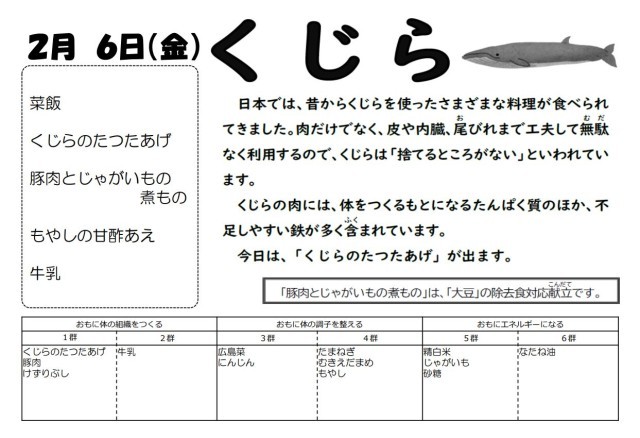 2月 6日(金)
くじら
菜飯
くじらのたつたあげ
豚肉とじゃがいもの
煮もの
もやしの甘酢あえ
牛乳
日本では、昔からくじらを使ったさまざまな料理が食べられ
てきました。肉だけでなく、皮や内臓、尾びれまで工夫して無駄
なく利用するので、くじらは「捨てるところがない」といわれてい
ます。
くじらの肉には、体をつくるもとになるたんぱく質のほか、不
足しやすい鉄が多く含まれています。
今日は、「くじらのたつたあげ」が出ます。
「豚肉とじゃがいもの煮もの」は、「大豆」の除去食対応献立です。
おもに体の組織をつくる おもに体の調子を整える おもにエネルギーになる
1群 2群 3群 4群 5群 6群
くじらのたつたあげ 牛乳 広島菜 たまねぎ 精白米 なたね油
豚肉 にんじん むきえだまめ じゃがいも
けずりぶし もやし 砂糖